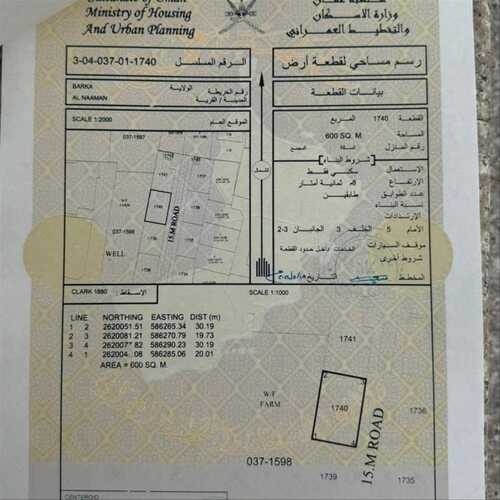 Sultanate of Oman
Ministry of Housing
And Urban Planning
سلطنة عمان
وزارة الاسكان
والتخطيط العمراني
3-04-037-01-1740
الرقم المسلسل
رسم مساحي لقطعة أرض
BARKA
الولاية
AL NAAMAN
رقم الخريطة
المدينة / القرية
بيانات القطعة
SCALE 1:2000
الموقع العام
القطعة 1740 المربع
المساحة 600 SQ. M.
رقم المنازل
شروط البناء
الاستعمال سكني فقط
الارتفاع 8م ثمانية أمتار
عدد الطوابق طابقين
نسبة البناء
الإرتدادات
الأمام 5 الخلف 3 الجانبان 3-2
موقف السيارات داخل حدود القطعة
شروط أخرى
المخطط
التاريخ
037-1597
1740
15.M ROAD
037-1598
WELL
1739
الشمال
CLARK 1880
الإسقاط
SCALE 1:1000
LINE NORTHING EASTING DIST (m)
1 2 2620051.51 586265.34 30.19
2 3 2620081.21 586270.79 19.73
3 4 586290.23 30.19
4 1 586285.06 20.01
AREA = 600 SQ. M.
1741
W-F
FARM
1740
15.M ROAD
1736
037-1598
1739
1735
CENTEROID